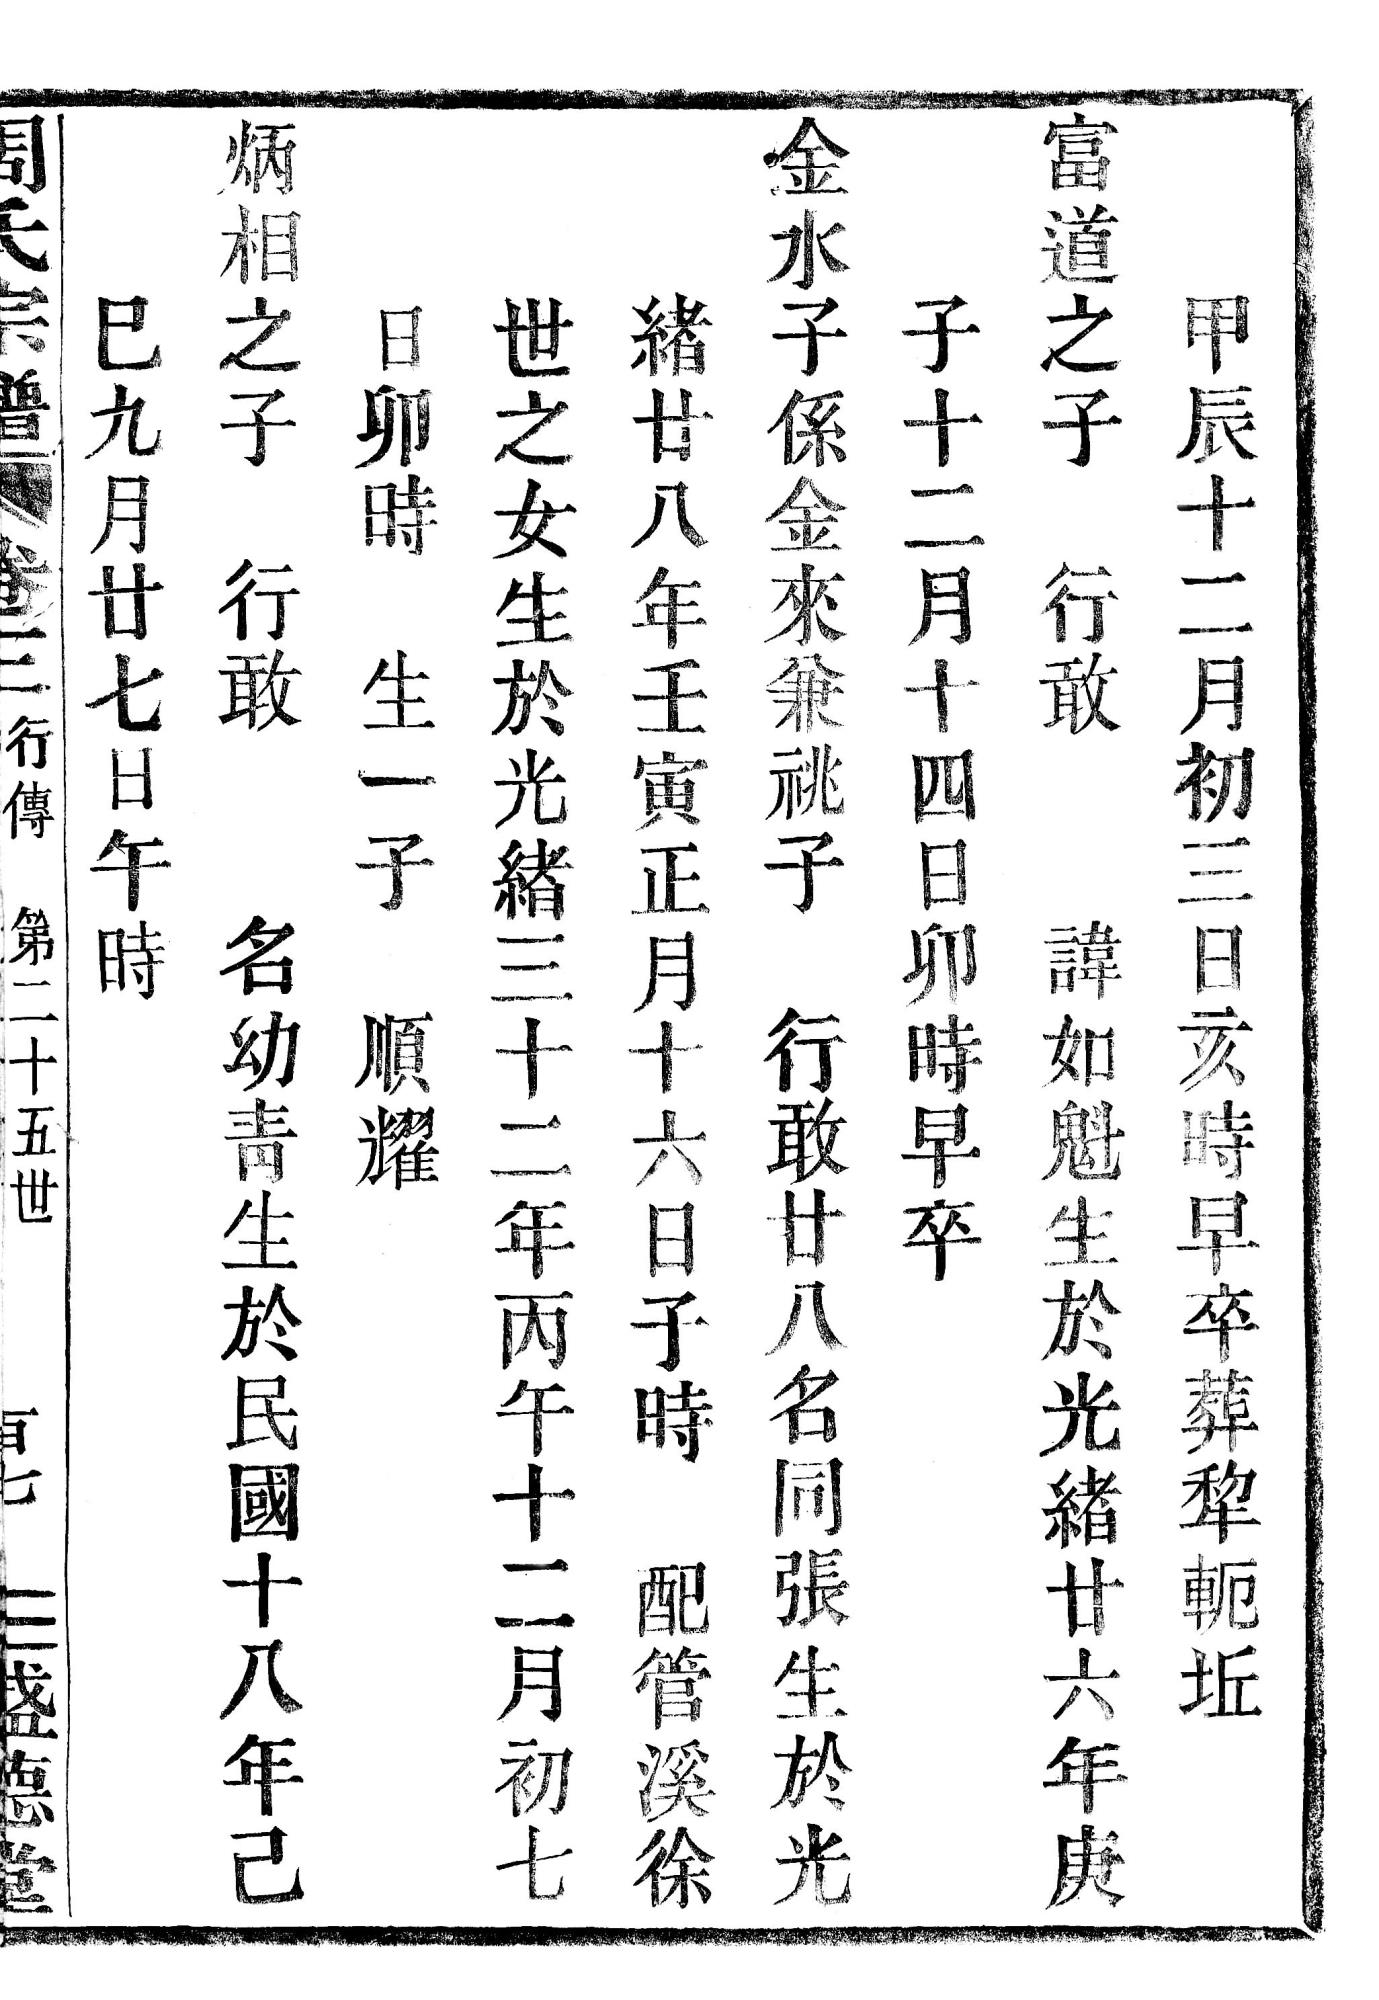 甲辰十二月初三日亥時早卒葬犂軛坵
富道之子　行敢　諱如魁生於光緒廿六年庚
子十二月十四日卯時早卒
金水子係金來兼祧子　行敢廿八名同張生於光
緒廿八年壬寅正月十六日子時　配管溪徐
世之女生於光緒三十二年丙午十二月初七
日卯時　生一子　順耀
炳相之子　行敢　名幼青生於民國十八年己
巳九月廿七日午時
周氏宗譜　卷三　行傳　第二十五世　百七　三盛德堂